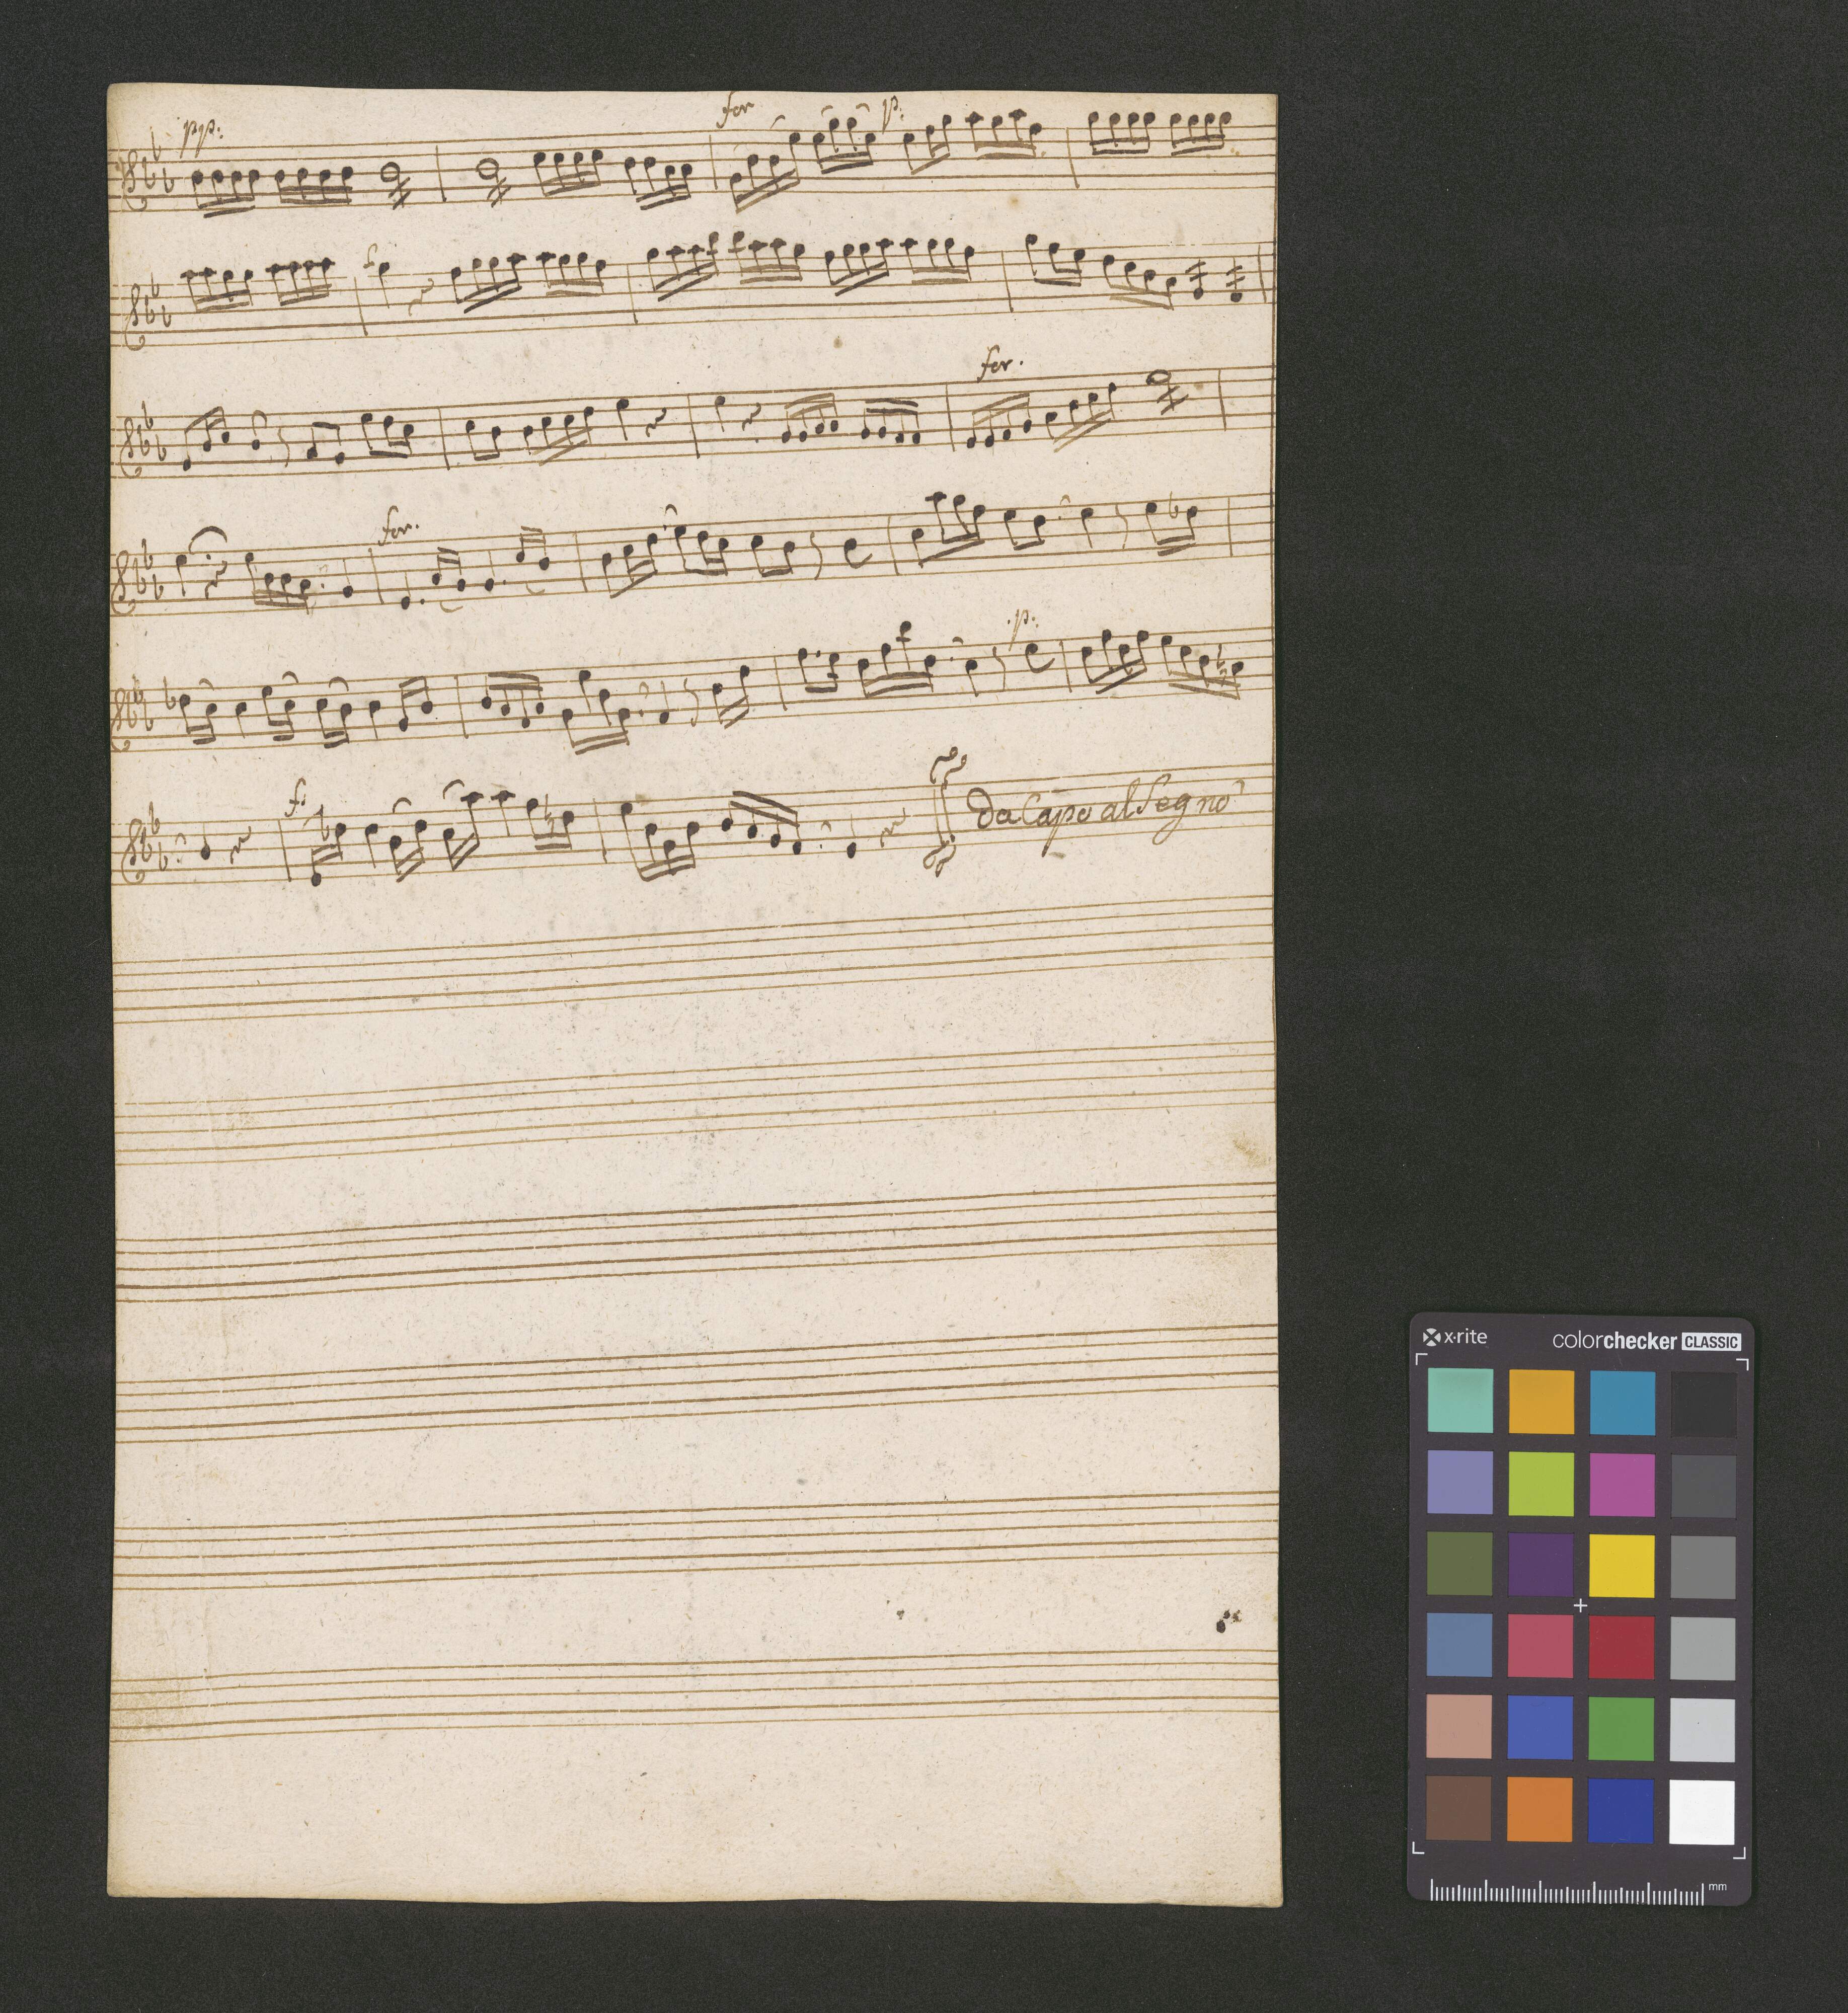 pp: for p:
f
for.
for.
p:
f: Da Capo al Segno
x·rite colorchecker CLASSIC
mm